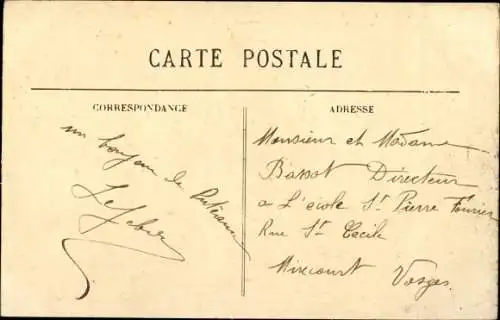 CARTE POSTALE
CORRESPONDANCE
un bonjour de Puteaux
Lefebvre
ADRESSE
Monsieur et Madame
Bassot Directeur
a L'école St Pierre Fourier
Rue Ste Cecile
Mirecourt Vosges.